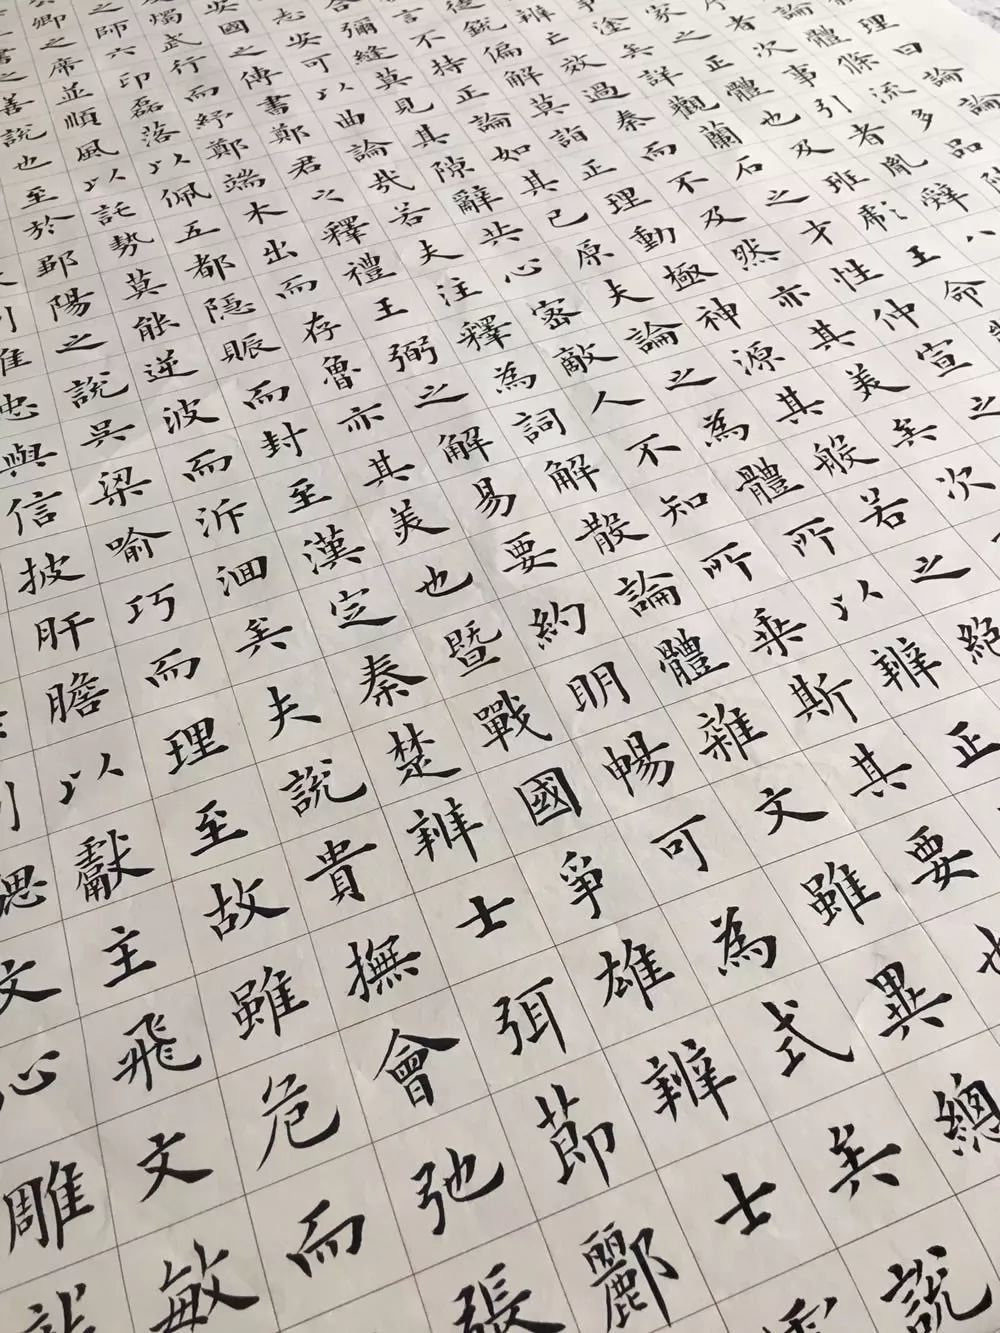 理曰論論
論體條流多品陳
序者次事引者胤辭八
家之正體也及班彪王命
塗矣詳觀蘭石之才性仲宣之
辨亡效過秦而不及然亦其美矣次
銳偏解莫詣正理動極神源其般若之絕
言不持正論如其已原夫論之為體所以辨正
合彌縫莫見其隙辭共心密敵人不知所乘斯其要也
志安可以曲論哉若夫注釋為詞解散論體雜文雖異總
安國之傳書鄭君之釋禮王弼之解易要約明暢可為式矣說
燭武行而紓鄭端木出而存魯亦其美也暨戰國爭雄辨士
之師六印磊落以佩五都隱賑而封至漢定秦楚辨士弭節酈
卿之席並順風以託勢莫能逆波而泝洄矣夫說貴撫會弛張
書之善說也至於鄒陽之說吳梁喻巧而理至故雖危而
唯忠與信披肝膽以獻主飛文敏
文心雕龍